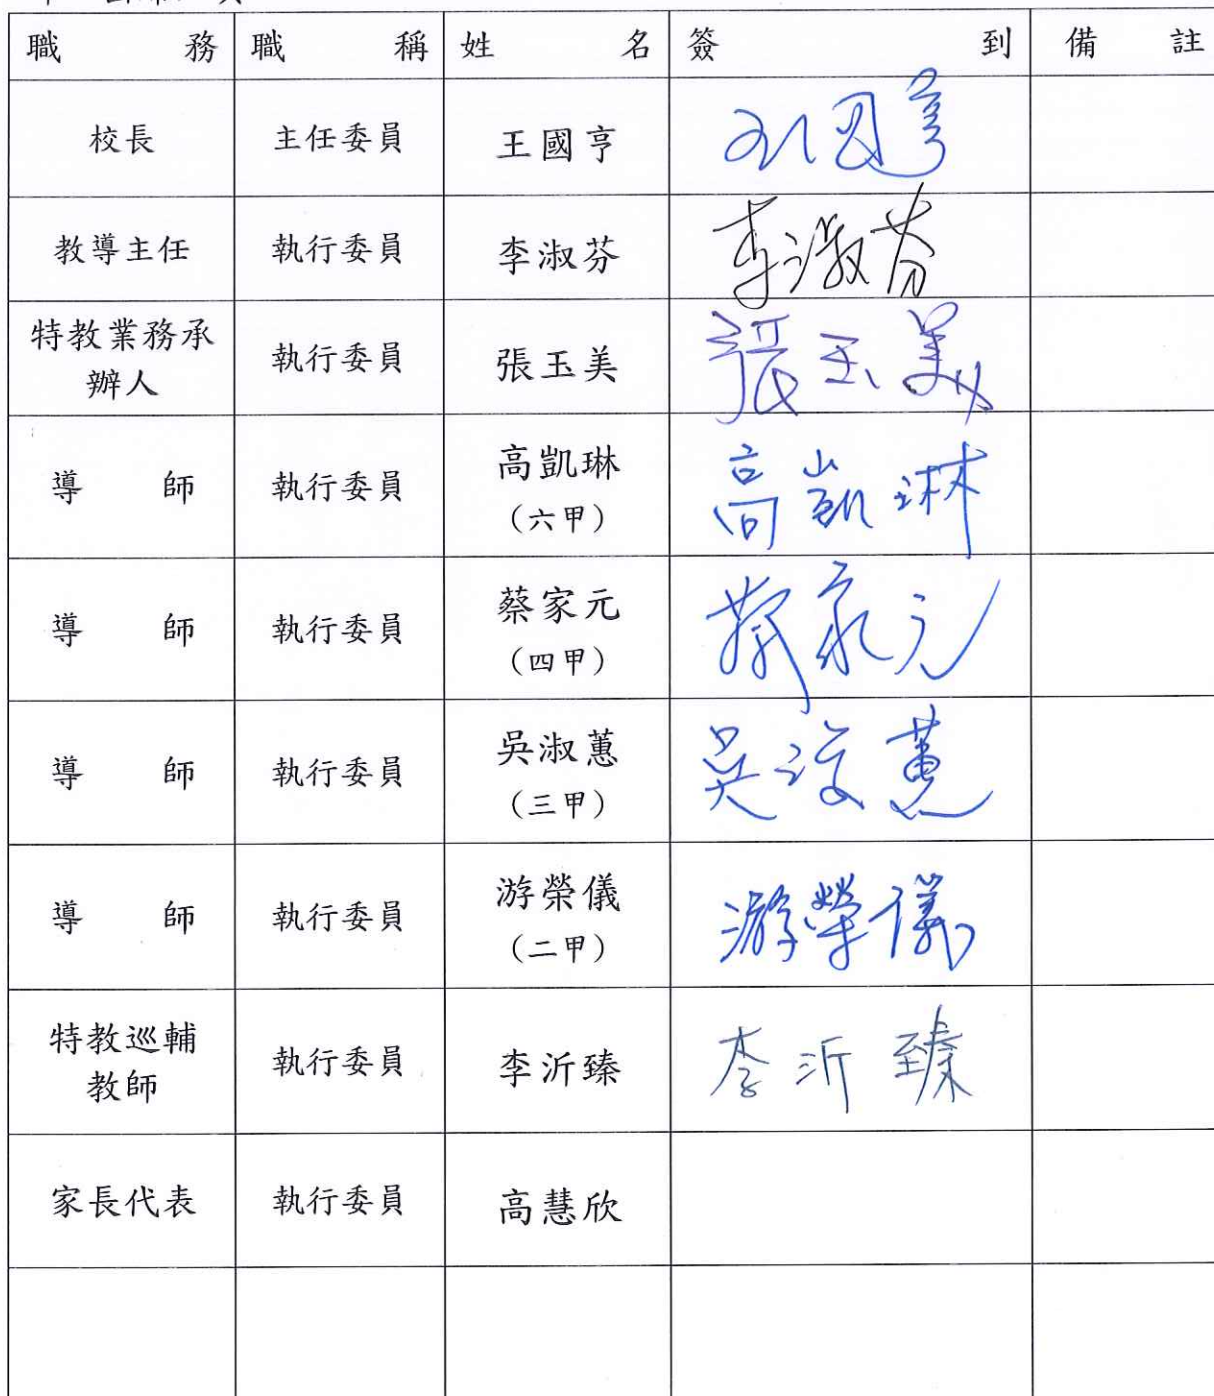 職務 職稱 姓名 簽到 備註
校長 主任委員 王國亨 王國亨
教導主任 執行委員 李淑芬 李淑芬
特教業務承
辦人 執行委員 張玉美 張玉美
導師 執行委員 高凱琳 高凱琳
（六甲）
導師 執行委員 蔡家元 蔡家元
（四甲）
導師 執行委員 吳淑蕙 吳淑蕙
（三甲）
導師 執行委員 游榮儀 游榮儀
（二甲）
特教巡輔
教師 執行委員 李沂臻 李沂臻
家長代表 執行委員 高慧欣